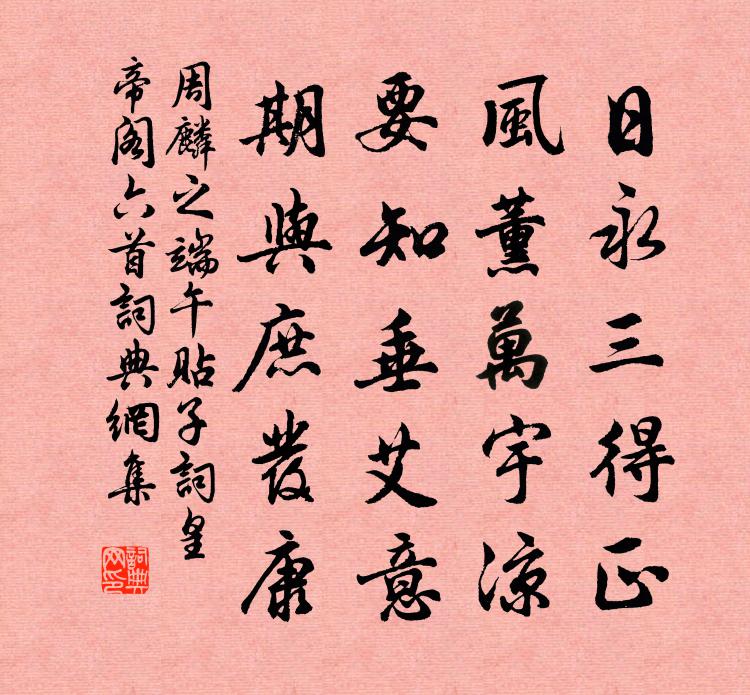 日永三得正
風薰萬宇涼
要知垂艾意
期與庶發康
周麟之端午貼子詞皇
帝閣六首詞典網集
詞典網印